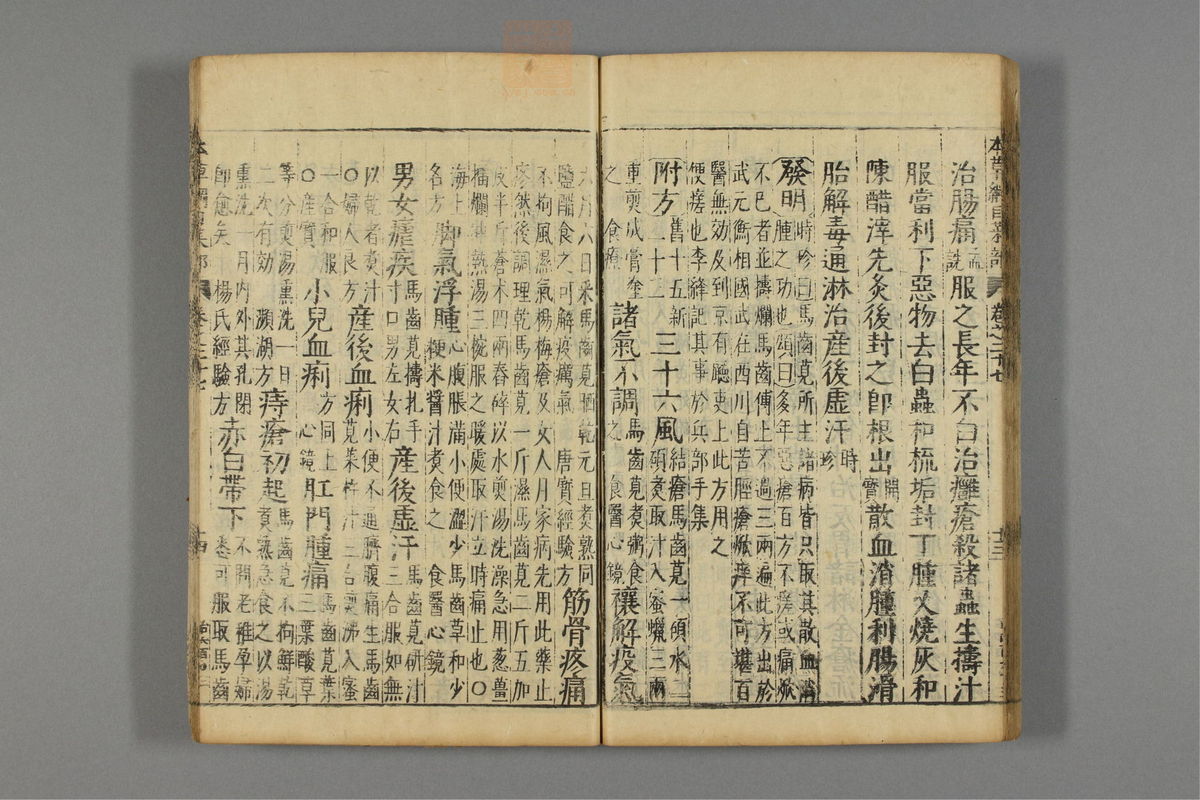 治腸痛孟詵服之長年不白治癰瘡殺諸蟲生擣汁
服當利下惡物去白蟲和梳垢封丁腫又燒灰和
陳醋滓先灸後封之卽根出開寶散血消腫利腸滑
胎解毒通淋治産後虛汗時珍
發明時珍曰馬齒莧所主諸病皆只取其散血消
腫之功也頌曰多年惡瘡百方不瘥或痛焮
不已者並擣爛馬齒傅上不過三兩遍此方出於
武元衡相國武在西川自苦脛瘡焮痒不可堪百
醫無効及到京有廳吏上此方用之
便瘥也李絳記其事於兵部手集
附方舊十五新二十三三十六風結瘡馬齒莧一碩水一碩煮取汁入蜜蠟三兩
重煎成膏塗之食療諸氣不調馬齒莧煮粥食之食醫心鏡禳解疫氣
六月六日采馬齒莧晒乾元旦煮熟同
鹽醋食之可解疫癘氣唐寶經驗方筋骨疼痛
不拘風濕氣楊梅瘡及女人月家病先用此藥止
疼然後調理乾馬齒莧一斤濕馬齒莧二斤五加
皮半斤蒼木四兩舂碎以水煎湯洗澡急用葱薑
擂爛冲熱湯三椀服之暖處取汗立時痛也〇
海上名方脚氣浮腫心腹脹滿小便澀少馬齒草和少粳米醬汁煮食之食醫心鏡
男女瘧疾馬齒莧擣扎手寸口男左女右産後虛汗馬齒莧研汁三合服如無
以乾者煑汁〇婦人良方産後血痢小便不通臍腹痛生馬齒莧菜杵汁三合煎沸入蜜
一合和服〇産寶小兒血痢方同上心鏡肛門腫痛馬齒莧葉三葉酸草
等分煎湯熏洗一日二次有効瀕湖方痔瘡初起馬齒莧不拘鮮乾煮熟急食之以湯
熏洗一月內外其孔閉卽愈矣楊氏經驗方赤白帶下不問老稚孕婦悉可服取馬齒